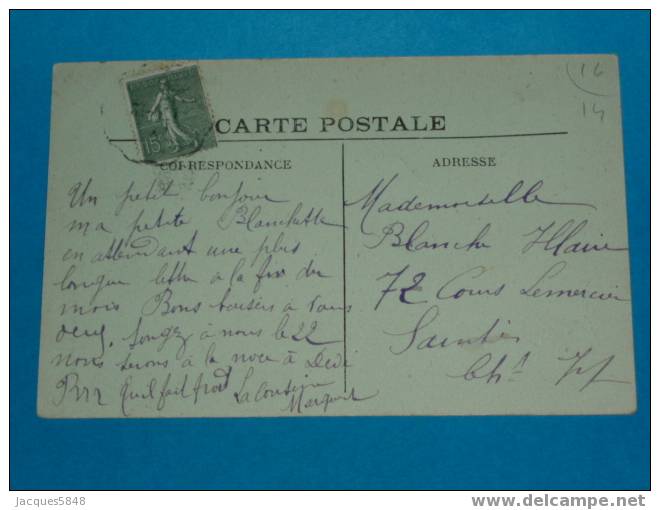 16
14
CARTE POSTALE
15
CORRESPONDANCE
ADRESSE
Un petit bonjour
ma petite Blanchette
en attendant une plus
longue lettre à la fin du
mois Bons baisers à tous
deux. Songez à nous le 22
nous serons à la noce à Dédé
Brrr Qu'il fait froid La Cousine
Mademoiselle
Blanche Hlaire
72 Cours Lemercier
Saintes
Chte
Jacques5848
www.delcampe.net